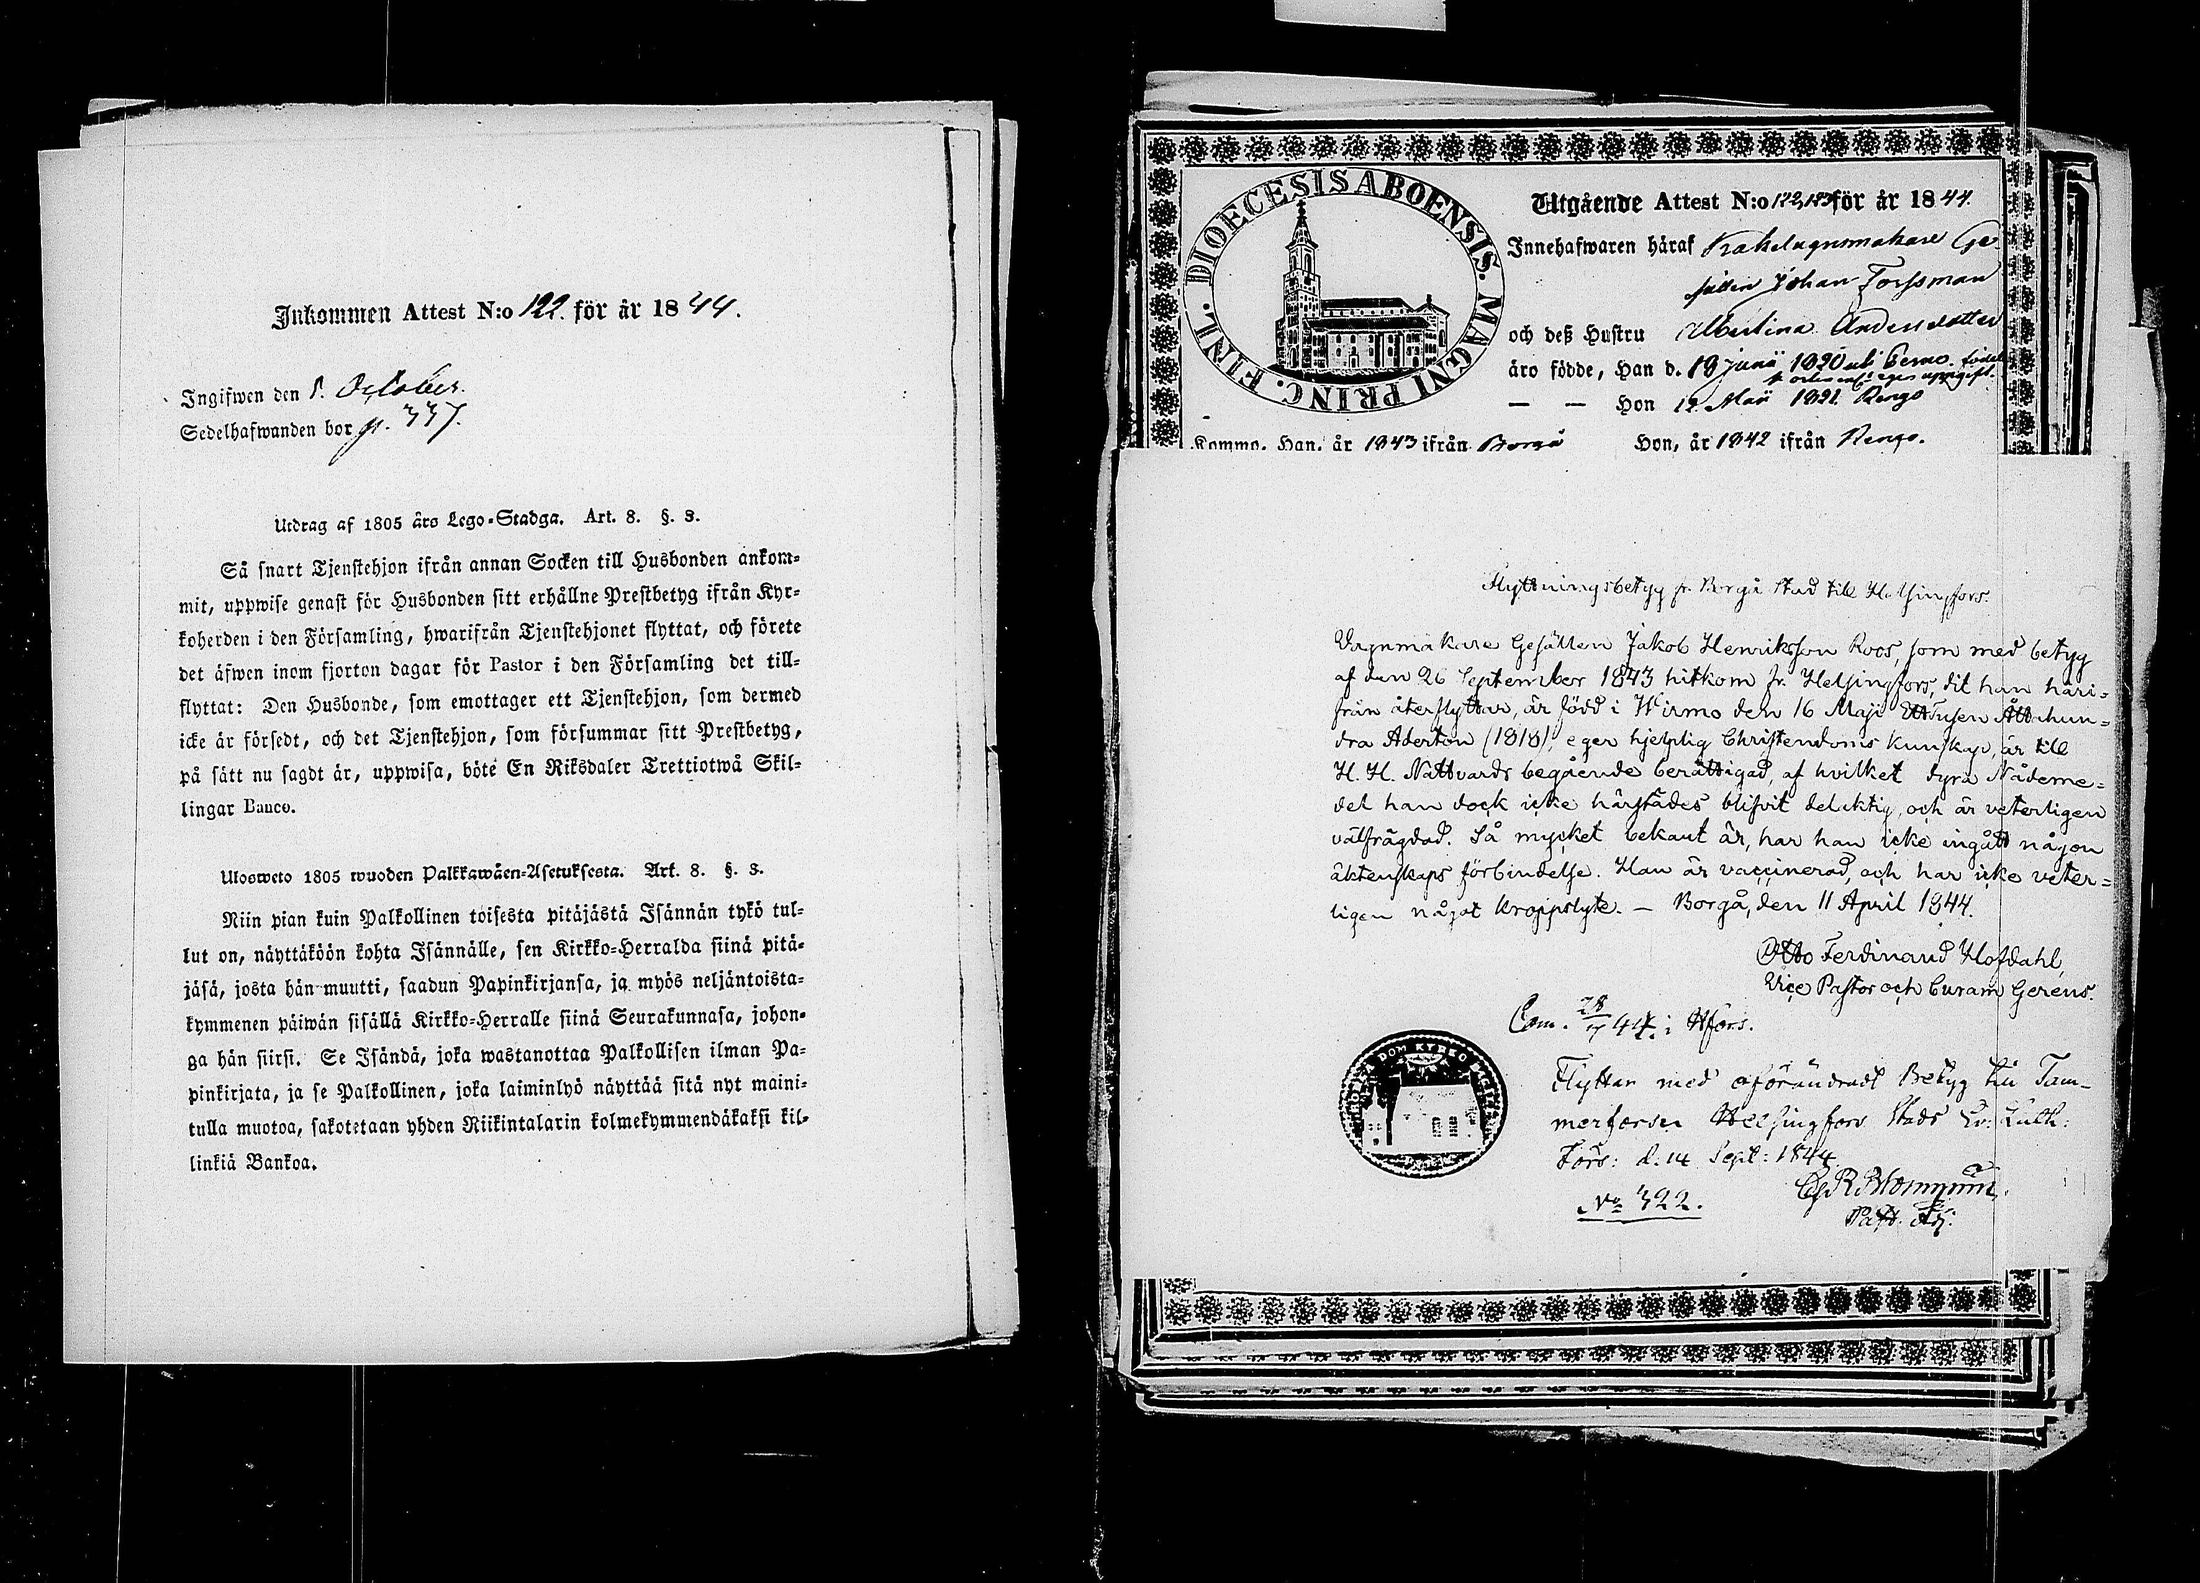 Inkommen Attest N:o 122. för år 1844.
Ingifwen den 1. October.
Sedelhafwanden bor p. 337.
Utdrag af 1805 års Lego-Stadga. Art. 8. §. 3.
Så snart Tjenstehjon ifrån annan Socken till Husbonden ankom-
mit, uppwise genast för Husbonden sitt erhållne Prestbetyg ifrån Kyr-
koherden i den Församling, hwarifrån Tjenstehjonet flyttat, och förete
det äfwen inom fjorton dagar för Pastor i den Församling det till-
flyttat: Den Husbonde, som emottager ett Tjenstehjon, som dermed
icke är försedt, och det Tjenstehjon, som försummar sitt Prestbetyg,
på sätt nu sagdt är, uppwisa, böte En Riksdaler Trettiotwå Skil-
lingar Banco.
Ulosweto 1805 wuoden Palkkawäen-Asetuksesta. Art. 8. §. 3.
Niin pian kuin Palkollinen toisesta pitäjästä Isännän tykö tul-
lut on, näyttäköön kohta Isännälle, sen Kirkko-Herralda siinä pitä-
jäsä, josta hän muutti, saadun Papinkirjansa, ja myös neljäntoista-
kymmenen päiwän sisällä Kirkko-Herralle siinä Seurakunnasa, johon-
ga hän siirsi. Se Isändä, joka wastanottaa Palkollisen ilman Pa-
pinkirjata, ja se Palkollinen, joka laiminlyö näyttää sitä nyt maini-
tulla muotoa, sakotetaan yhden Riikintalarin kolmekymmendäkaksi kil-
linkiä Bankoa.
DIOECESIS ABOENSIS. MAGNI PRINC. FINL.
Utgående Attest N:o 122, 123 för år 1844.
Innehafwaren häraf Kakelugnsmakare Ge-
sällen Johan Forssman
och deß Hustru Albertina Andersdotter
äro födde, Han d. 18 Junii 1820 uti Perno
egen uppgift.
— — Hon 12 Maii 1821. Rengo
Komme. Han. år 1843 ifrån Borgå Hon, år 1842 ifrån Rengo.
Flyttningsbetyg fr. Borgå Stad till Helsingfors.
Vagnmakare Gesällen Jakob Henriksson Roos, som med betyg
af den 26 September 1843 hitkom fr. Helsingfors, dit han häri-
från återflyttar, är född i Wirmo den 16 Maji Ettusen Åttahun-
dra Aderton (1818), eger hjelplig Christendoms kunskap, är till
H. H. Nattvards begående berättigad, af hvilket dyra Nådeme-
del han dock icke härstädes blifvit delaktig, och är veterligen
välfrägdad. Så mycket bekant är, har han icke ingått någon
äktenskaps förbindelse. Han är vaccinerad, och har icke veter-
ligen något kroppslyte. — Borgå, den 11 April 1844.
Otto Ferdinand Hofdahl,
Vice Pastor och Curam Gerens.
Com. 28/7 44. i Hfors.
DOM KYRKO
Flyttar med oförändradt Betyg till Tam-
merforsen Helsingfors Stads Ev: Luth:
Förs: d. 14 Sept: 1844
No 322.
Past. Adj: